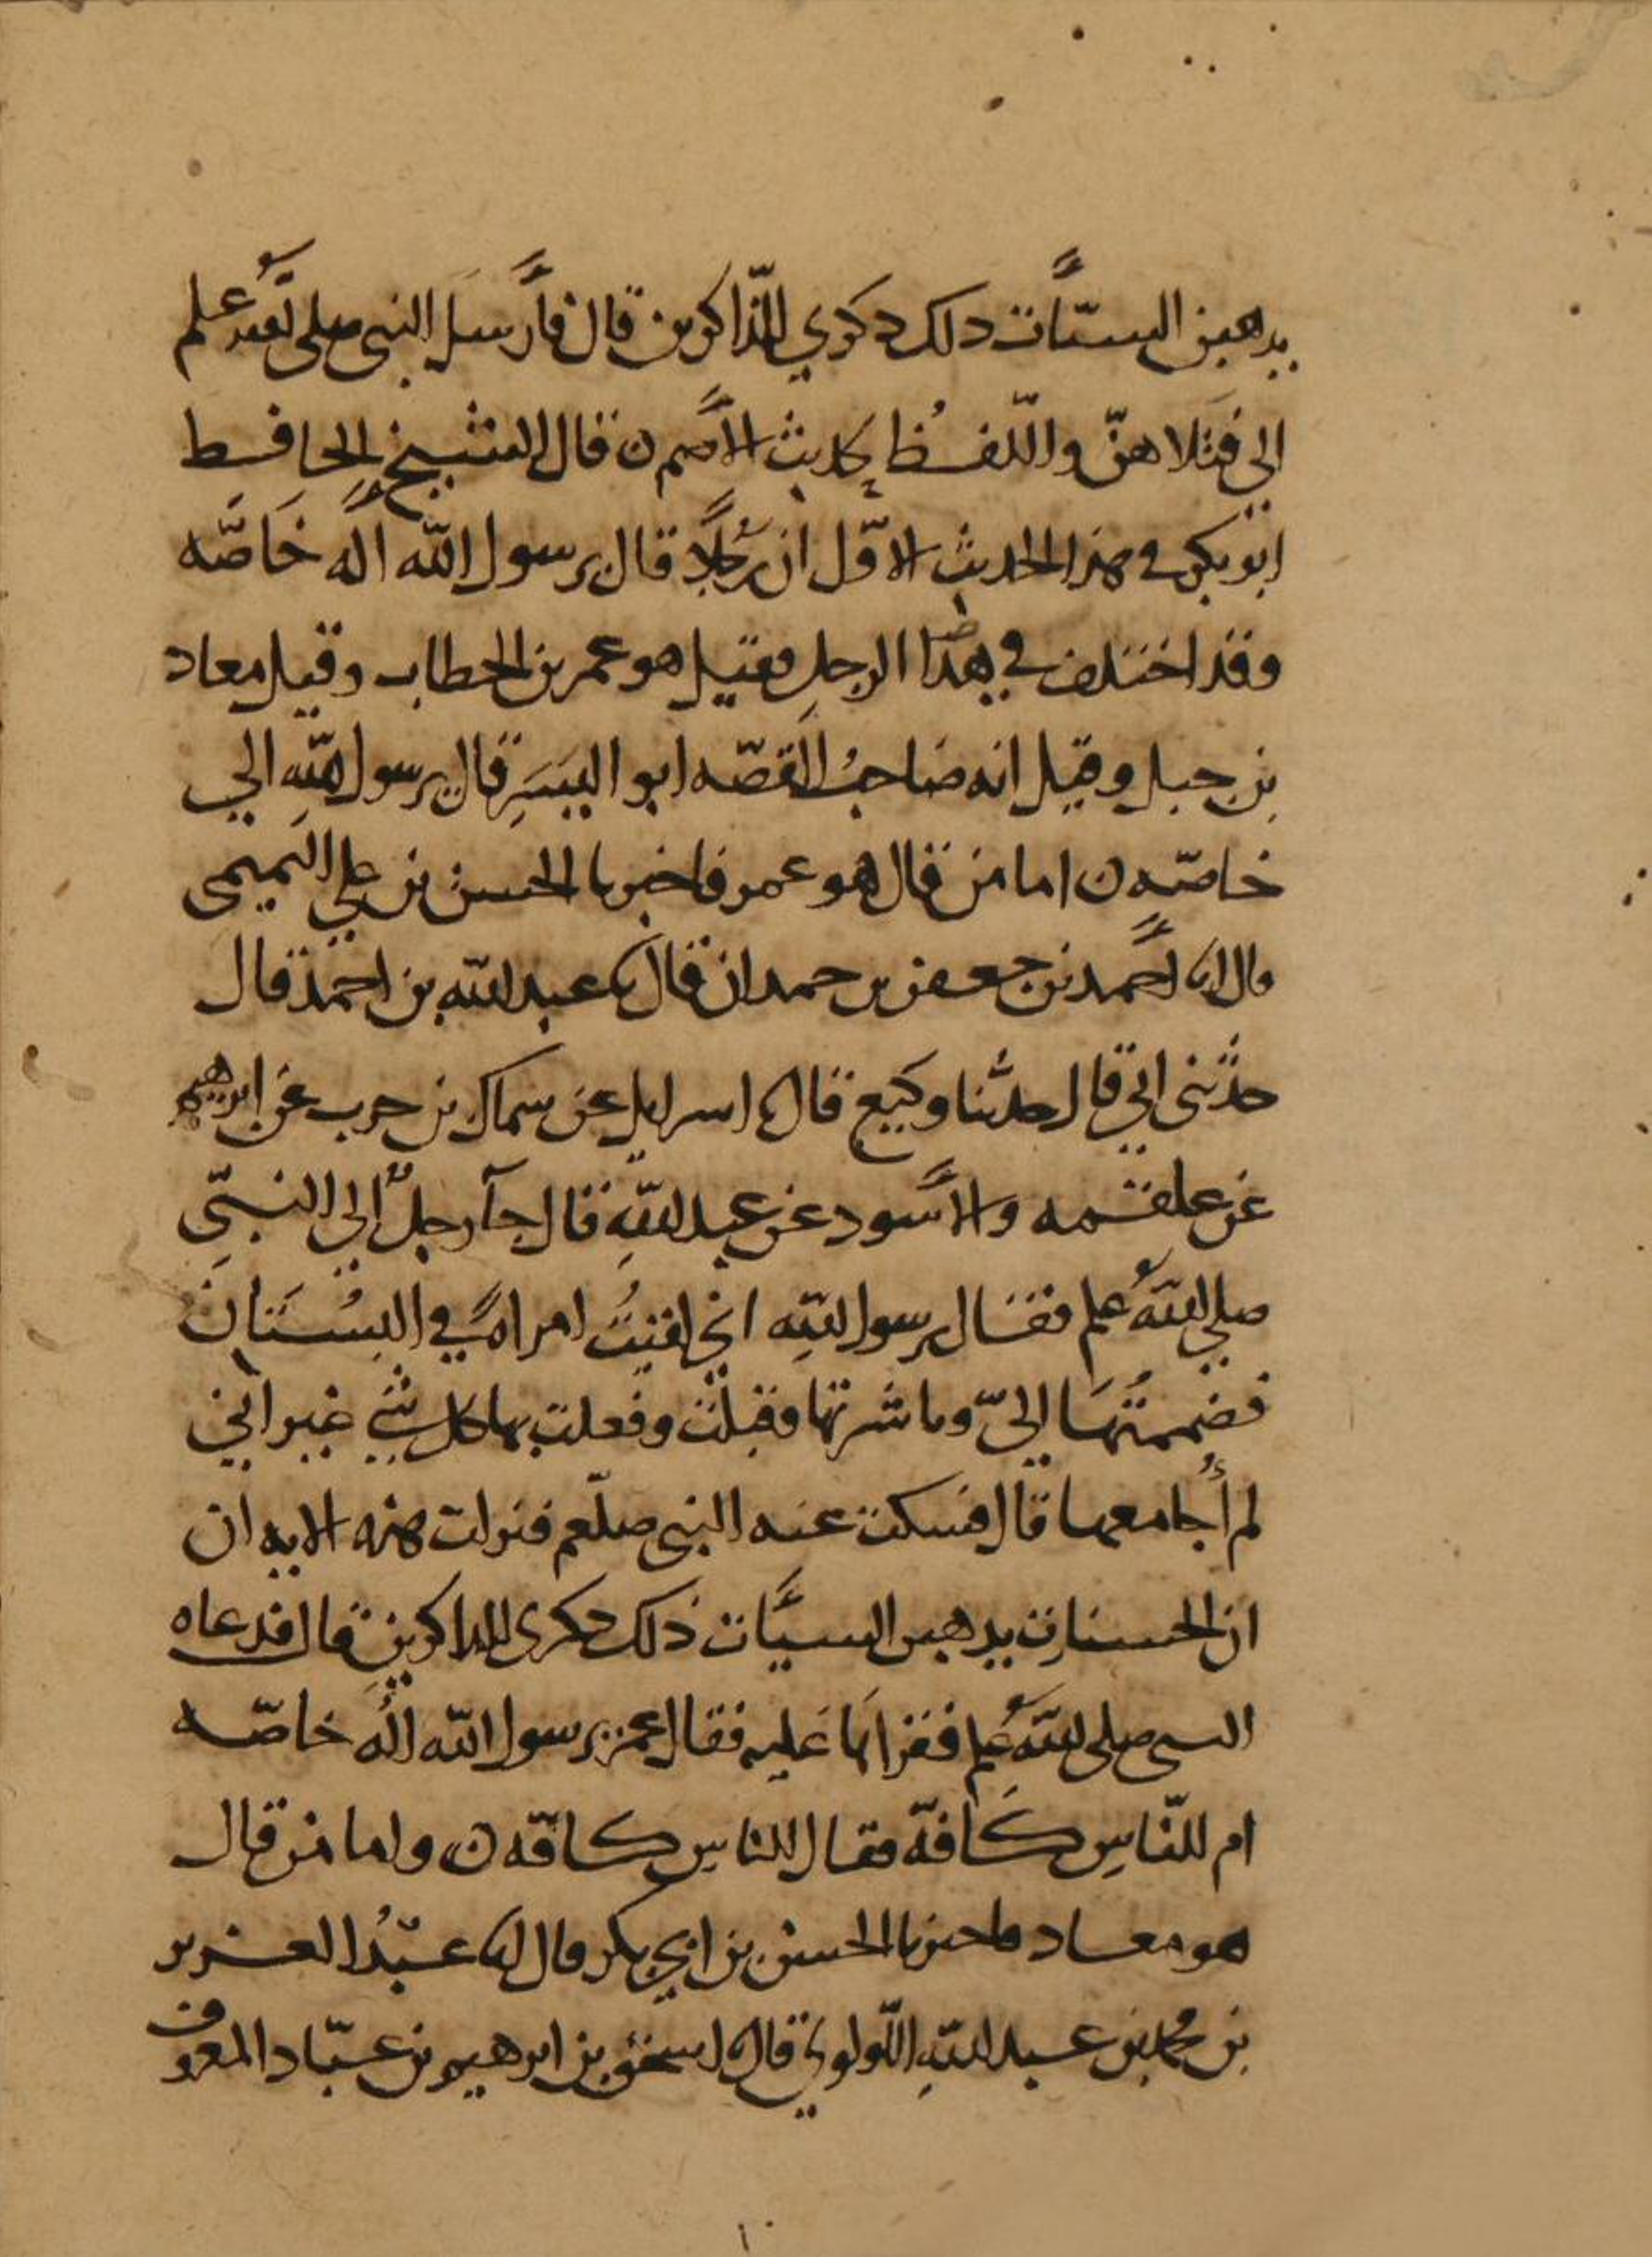 يدهبن السيّات دلك دكري للذّاكرين قال فأرسل النبي صلى الله علم
إلي فتلاهنّ واللّفظ لحديث الأصم ن قال الشيخ الحافظ
ابو بكر في هذا الحديث الأوّل ان رجلاً قال يرسول الله أله خَاصّه
وقد اختلف في هذا الرجل فقيل هو عمر بن الخطاب وقيل معاد
بن جبل وقيل انه صَاحبُ القصّه ابو اليَسَرِ قال يرسول الله الي
خاصّه ن اما من قال هو عمر فاخبرنا الحسن بن علي التميمي
قال انا أحمد بن جعفر بن حمدان قال نا عبد الله بن احمد قال
حدّثنى ابي قال حدّثنا وكيع قال نا اسرايل عن سماك بن حرب عن ابرهيم
عن علقمه والأسود عن عبد اللهِ قال جآ رجلٌ إلي النبيّ
صلي اللهُ علم فقال يرسول الله اني لقيتُ امراةً في البُسْتَان
فضممتُهَا إليّ وباشرتها وقبلت وفعلت بها كل شي غير أني
لم أُجامعها قال فسكت عنه النبي صلّعم فنزلت هذه الايه ان
ان الحسنات يدهبن السيَّات ذلك دكرى للداكرينِ قال فدعاه
النبي صلى اللهُ علم فقرأها عَليه فقال عمر يرسول الله ألُه خاصّه
ام للنّاسِ كَافّة فقال للناسِ كافّه ن واما من قال
هو معاد فاخبرنا الحسن بن ابي بكر قال انا عبْدُ العزيز
بن محمد بن عبد اللهِ اللّولوي قال نا اسحق بن ابرهيم بن عبّاد المعروف
١٠